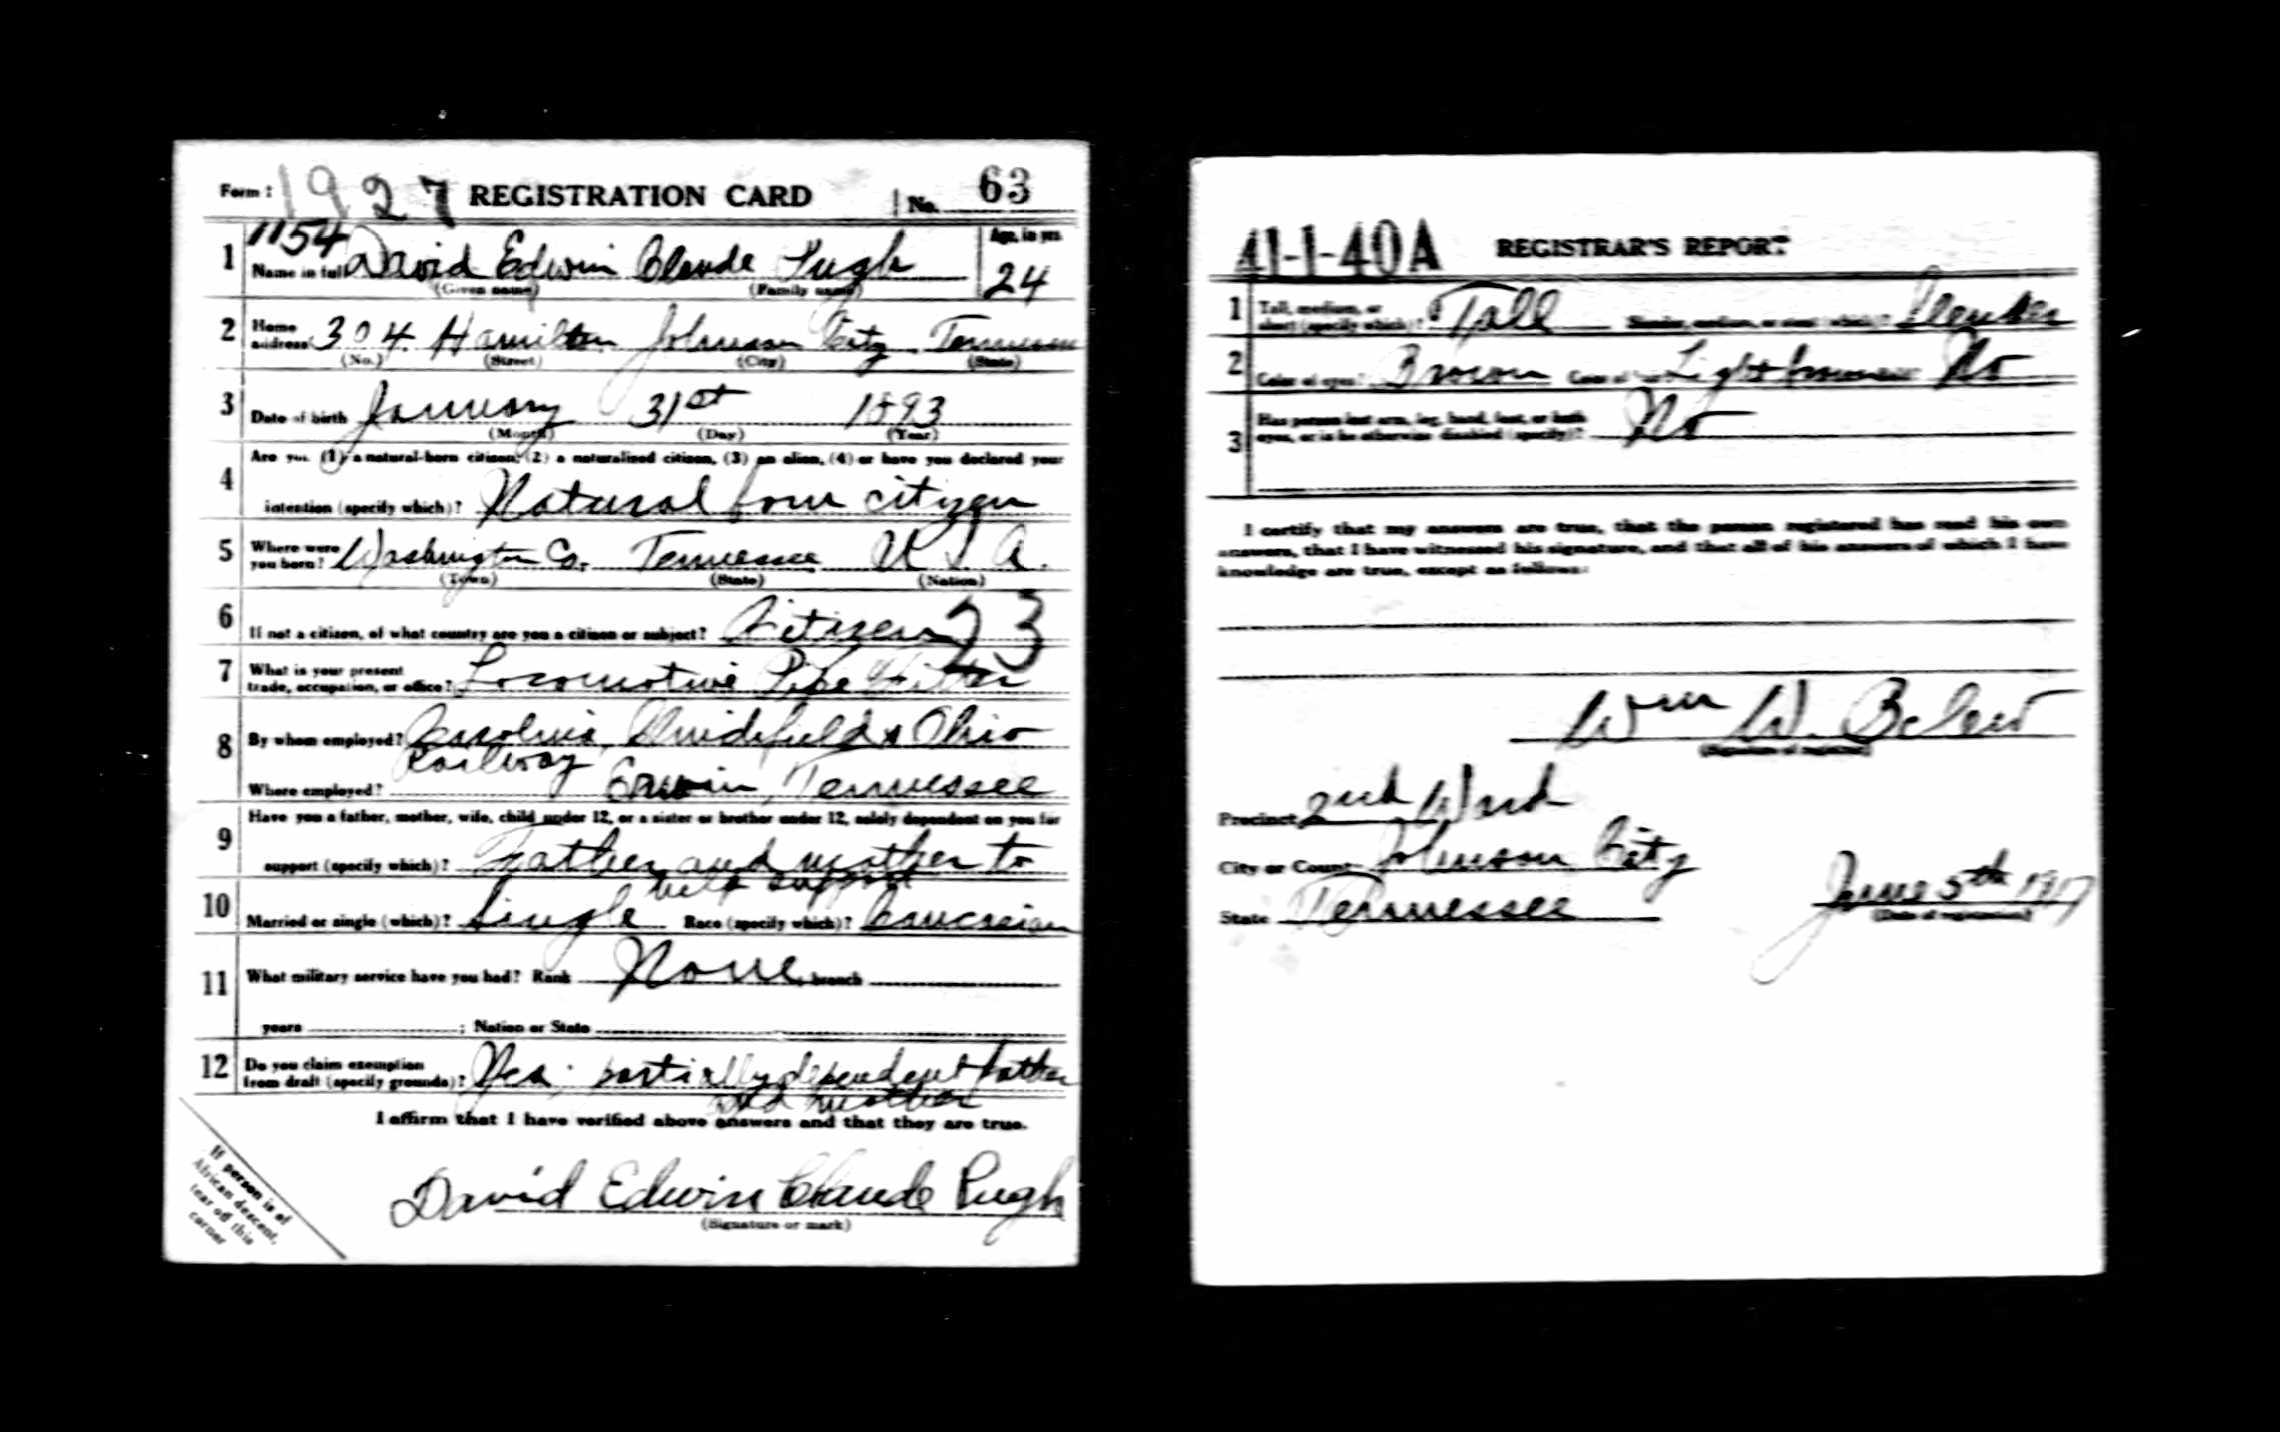 Form 1 1927 REGISTRATION CARD No. 63
1154
1 Name in full David Edwin Claude Pugh Age, in yrs. 24
(Given name) (Family name)
2 Home address 304 Hamilton Johnson City Tennessee
(No.) (Street) (City) (State)
3 Date of birth January 31st 1893
(Month) (Day) (Year)
4 Are you (1) a natural-born citizen, (2) a naturalized citizen, (3) an alien, (4) or have you declared your
intention (specify which)? Natural born citizen
5 Where were you born? Washington Co. Tennessee U. S. A.
(Town) (State) (Nation)
6 If not a citizen, of what country are you a citizen or subject? Citizen 23
7 What is your present trade, occupation, or office? Locomotive Pipe Fitter
8 By whom employed? Carolina, Clinchfield & Ohio
Railway
Where employed? Erwin, Tennessee
9 Have you a father, mother, wife, child under 12, or a sister or brother under 12, solely dependent on you for
support (specify which)? Father and mother to
help support
10 Married or single (which)? Single Race (specify which)? Caucasian
11 What military service have you had? Rank None branch
years ; Nation or State
12 Do you claim exemption from draft (specify grounds)? Yes; partially dependent father
and mother
I affirm that I have verified above answers and that they are true.
David Edwin Claude Pugh
(Signature or mark)
If person is of
African descent,
tear off this
corner
41-1-40 A REGISTRAR'S REPORT
1 Tall, medium, or short (specify which)? Tall Slender, medium, or stout (which)? Slender
2 Color of eyes? Brown Color of hair? Light brown No
3 Has person lost arm, leg, hand, foot, or both
eyes, or is he otherwise disabled (specify)? No
I certify that my answers are true, that the person registered has read his own
answers, that I have witnessed his signature, and that all of his answers of which I have
knowledge are true, except as follows:
Wm W. Belew
(Signature of registrar)
Precinct 2nd Ward
City or County Johnson City
State Tennessee June 5th 1917
(Date of registration)